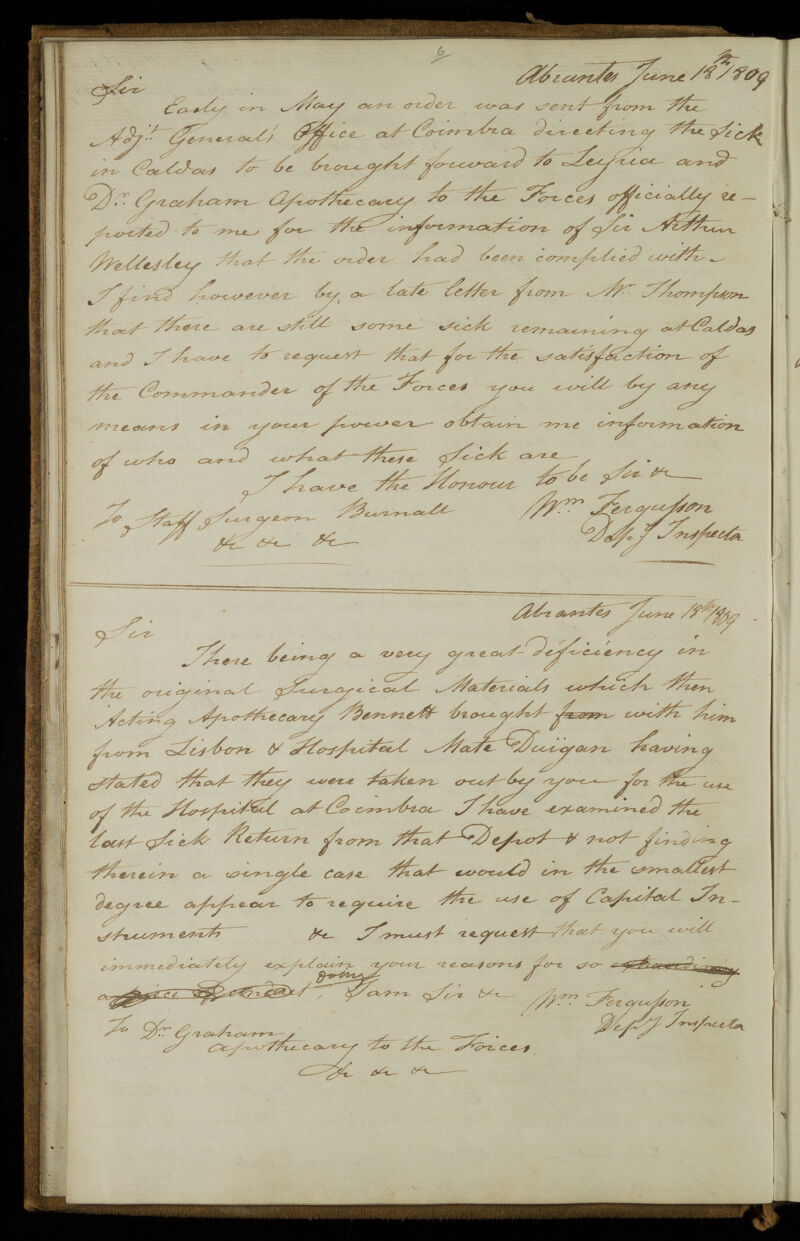 6
Abrantes June 18th 1809
Sir
Early in May an order was sent from the
Adjt. General's Office at Coimbra directing the Sick
in Caldas to be brought forward to Leyria and
Dr. Graham Apothecary to the Forces officially re-
ported to me for the information of Sir Arthur
Wellesley that the order had been complied with.
I find however by a late letter from Mr. Thompson
that there are still some sick remaining at Caldas
and I have to request that for the satisfaction of
the Commander of the Forces you will by any
means in your power obtain me information
of who and what these Sick are
I have the Honour to be Sir &c
To Staff Surgeon Burnall Wm Fergusson
&c &c &c Depy Inspector
Abrantes June 18th 1809
Sir
There being a very great deficiency in
the original Surgical Materials which then
Acting Apothecary Bennett brought from with him
from Lisbon & Hospital Mate Duigan having
stated that they were taken out by you for the use
of the Hospital at Coimbra I have examined the
last Sick Return from that Depot & not finding
therein a single case that would in the smallest
degree appear to require the use of Capital In-
struments &c I must request that you will
immediately explain your reasons for so extraordinary
doing
a piece of conduct, I am Sir &c Wm Fergusson
To Dr Graham Depy Inspector
Apothecary to the Forces
&c &c &c